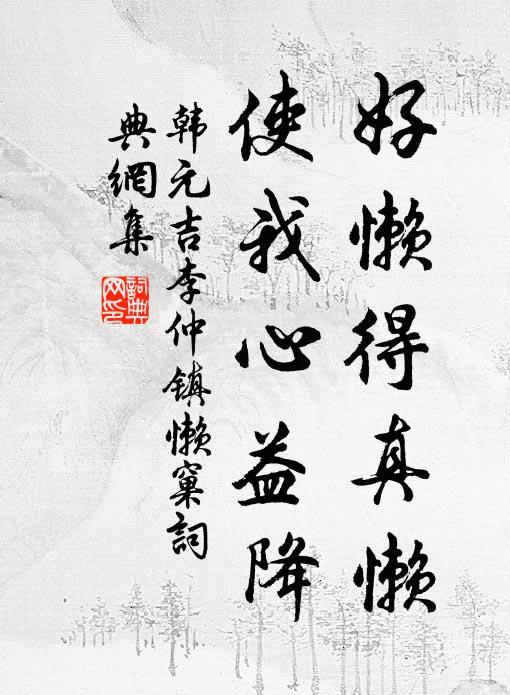 好懒得真懒
使我心益降
韩元吉李仲镇懒窠詞
典網集
詞典网印